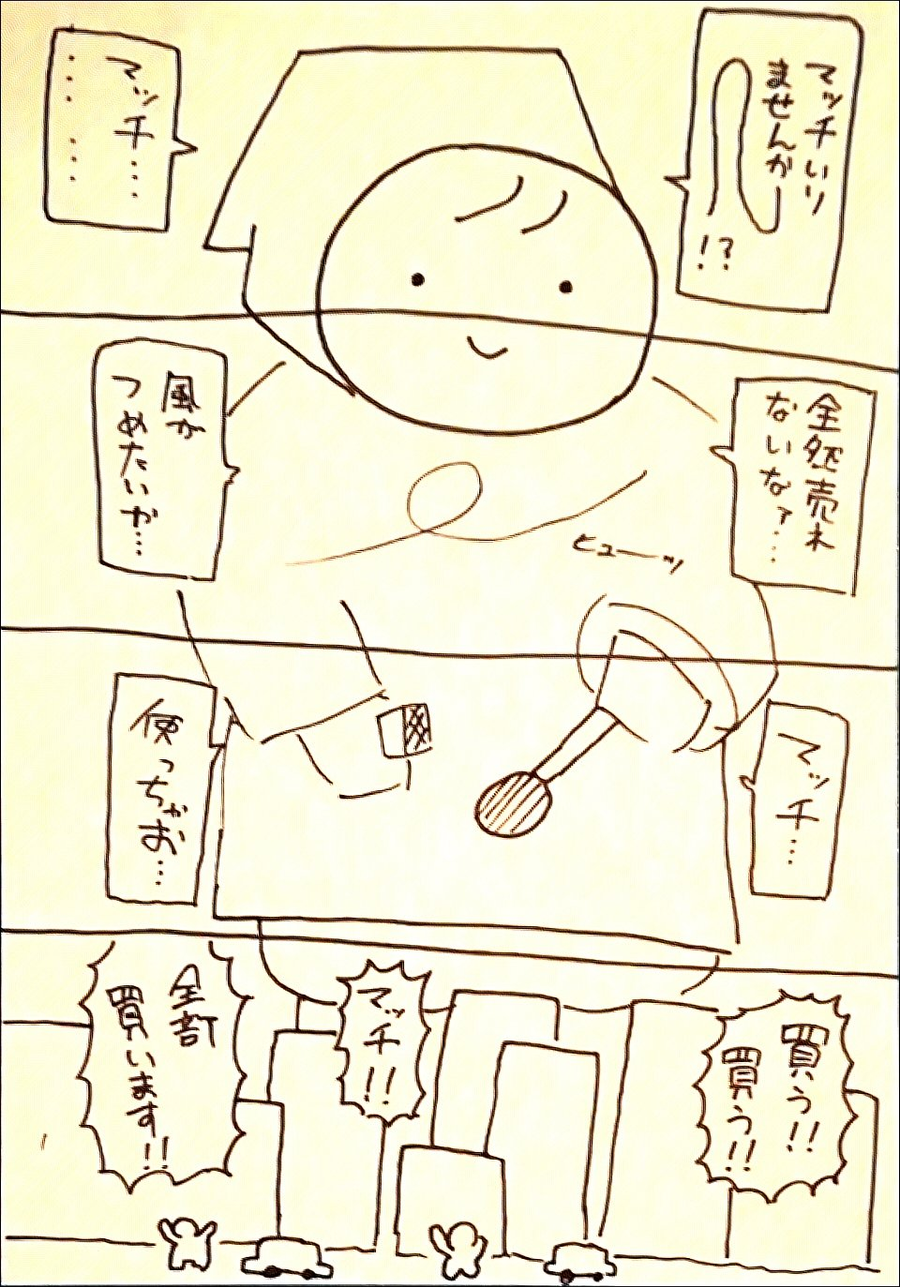 マッチいり
ませんかー
!?
マッチ‥‥
‥‥‥‥‥‥
全然売れ
ないなァ…
ヒューッ
風が
つめたいや…
マッチ…
使っちゃお…
買う!!
買う!!
マッチ!!
全部
買います!!